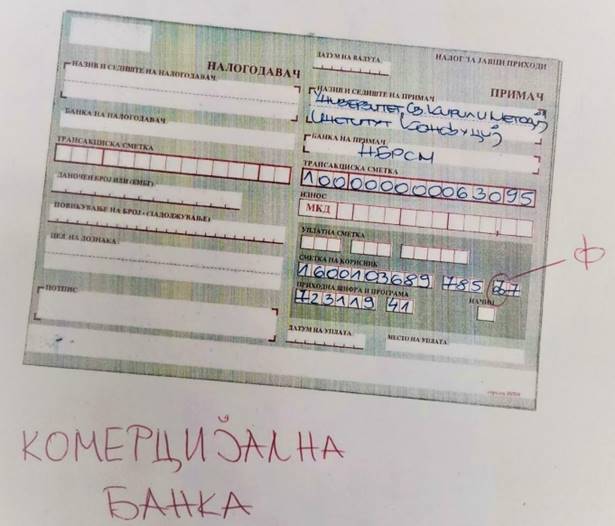 ДАТУМ НА ВАЛУТА
НАЛОГ ЗА ЈАВНИ ПРИХОДИ
НАЛОГОДАВАЧ
НАЗИВ И СЕДИШТЕ НА НАЛОГОДАВАЧ
БАНКА НА НАЛОГОДАВАЧ
ТРАНСАКЦИСКА СМЕТКА
ДАНОЧЕН БРОЈ ИЛИ (ЕМБГ)
ПОВИКУВАЊЕ НА БРОЈ - (ЗАДОЛЖУВАЊЕ)
ЦЕЛ НА ДОЗНАКА
ПОТПИС
ПРИМАЧ
НАЗИВ И СЕДИШТЕ НА ПРИМАЧ
УНИВЕРЗИТЕТ (СВ. КИРИЛ И МЕТОДИЈ)
ИНСТИТУТ (КОНФУЦИЈ)
БАНКА НА ПРИМАЧ
НБРСМ
ТРАНСАКЦИСКА СМЕТКА
100000000063095
ИЗНОС
МКД
УПЛАТНА СМЕТКА
СМЕТКА НА КОРИСНИК
1600103689 785
ф
ПРИХОДНА ШИФРА И ПРОГРАМА
723119 41
НАЧИН
ДАТУМ НА УПЛАТА
МЕСТО НА УПЛАТА
КОМЕРЦИЈАЛНА
БАНКА